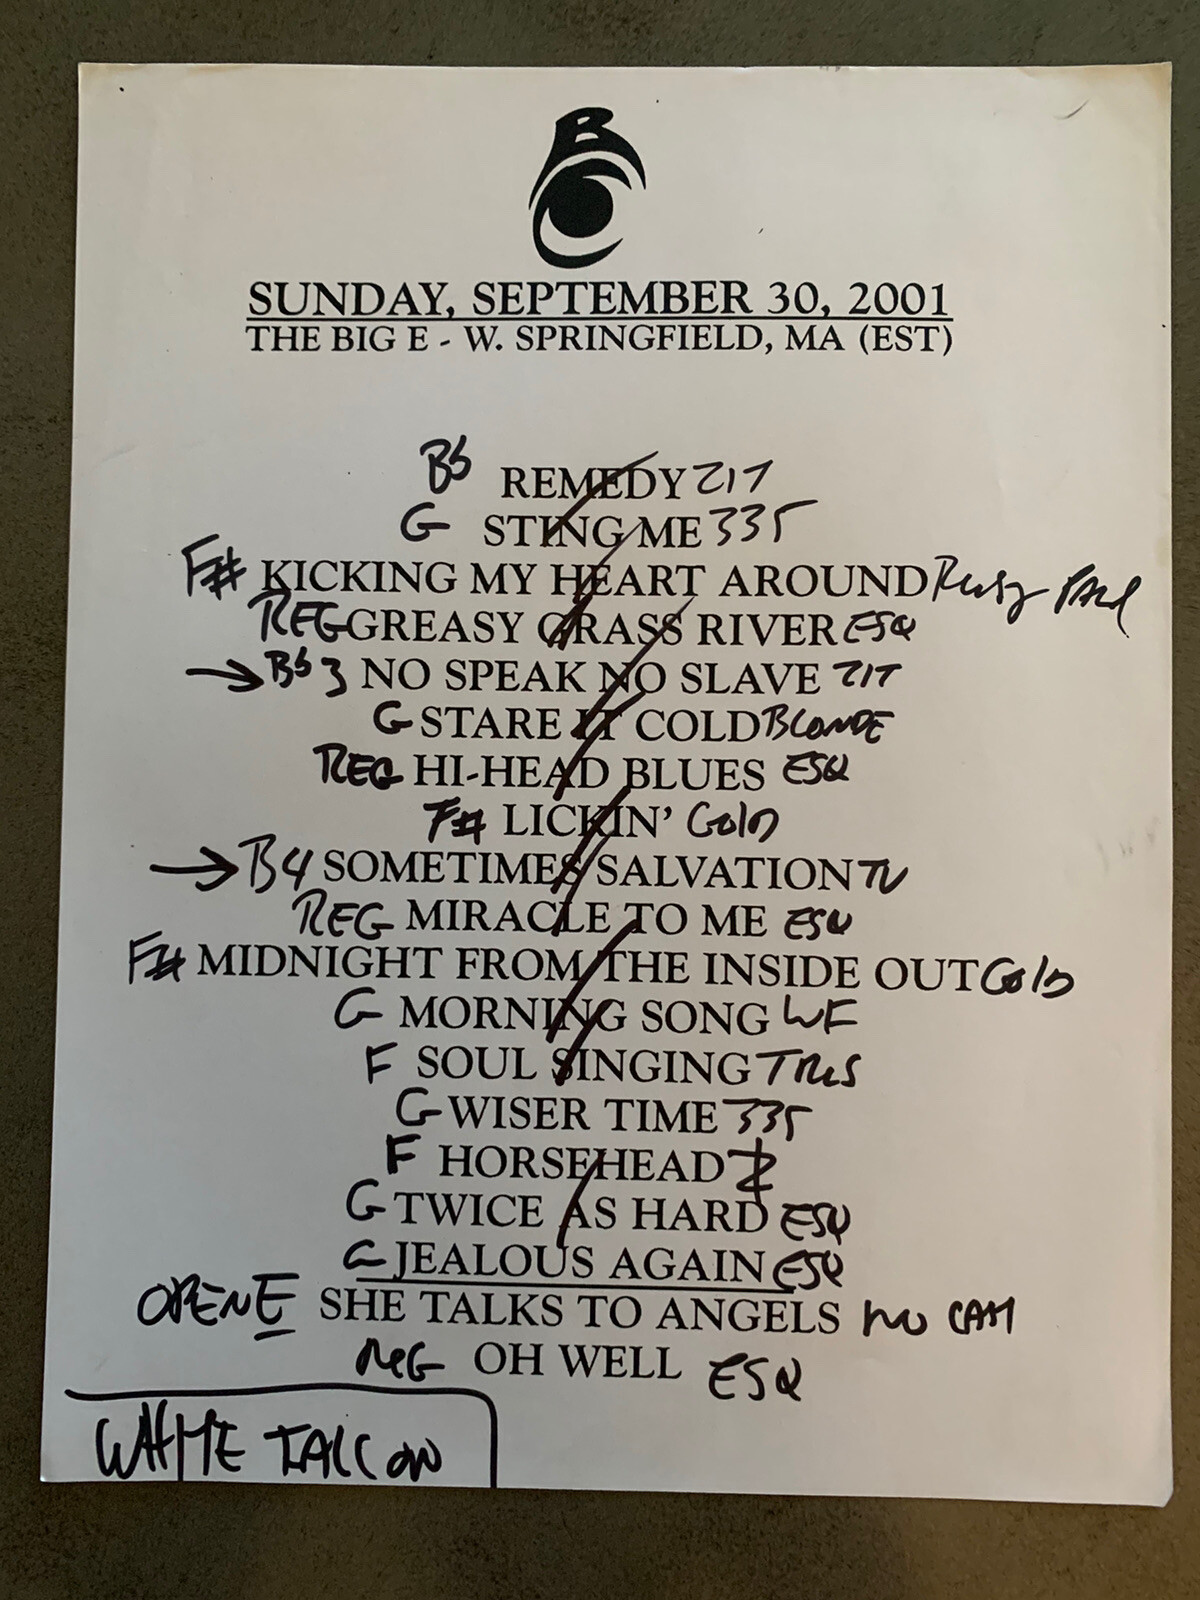 B
SUNDAY, SEPTEMBER 30, 2001
THE BIG E - W. SPRINGFIELD, MA (EST)
B5 REMEDY ZIT
G STING ME 335
F# KICKING MY HEART AROUND
REG GREASY GRASS RIVER ESQ
→ B5 3 NO SPEAK NO SLAVE ZIT
G STARE IT COLD BLONDE
REG HI-HEAD BLUES ESQ
F# LICKIN' Gold
→ B4 SOMETIMES SALVATION TV
REG MIRACLE TO ME ESQ
F# MIDNIGHT FROM THE INSIDE OUT Gold
G MORNING SONG WF
F SOUL SINGING
G WISER TIME 335
F HORSEHEAD
G TWICE AS HARD ESQ
G JEALOUS AGAIN ESQ
OPEN E SHE TALKS TO ANGELS
REG OH WELL ESQ
WHITE FALCON